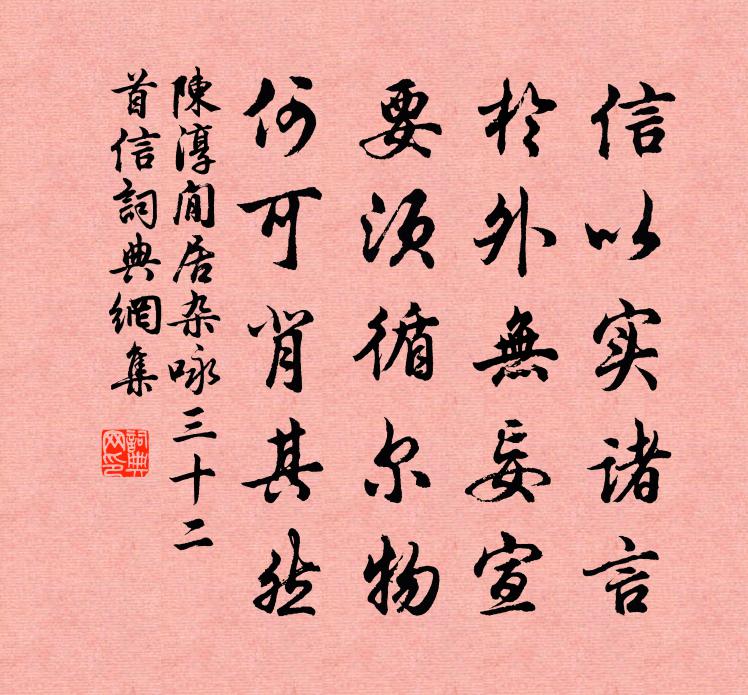 信以实诸言
於外無妄宣
要须循尔物
何可背其然
陳淳閒居杂咏三十二
首信詞典網集
詞典
网印